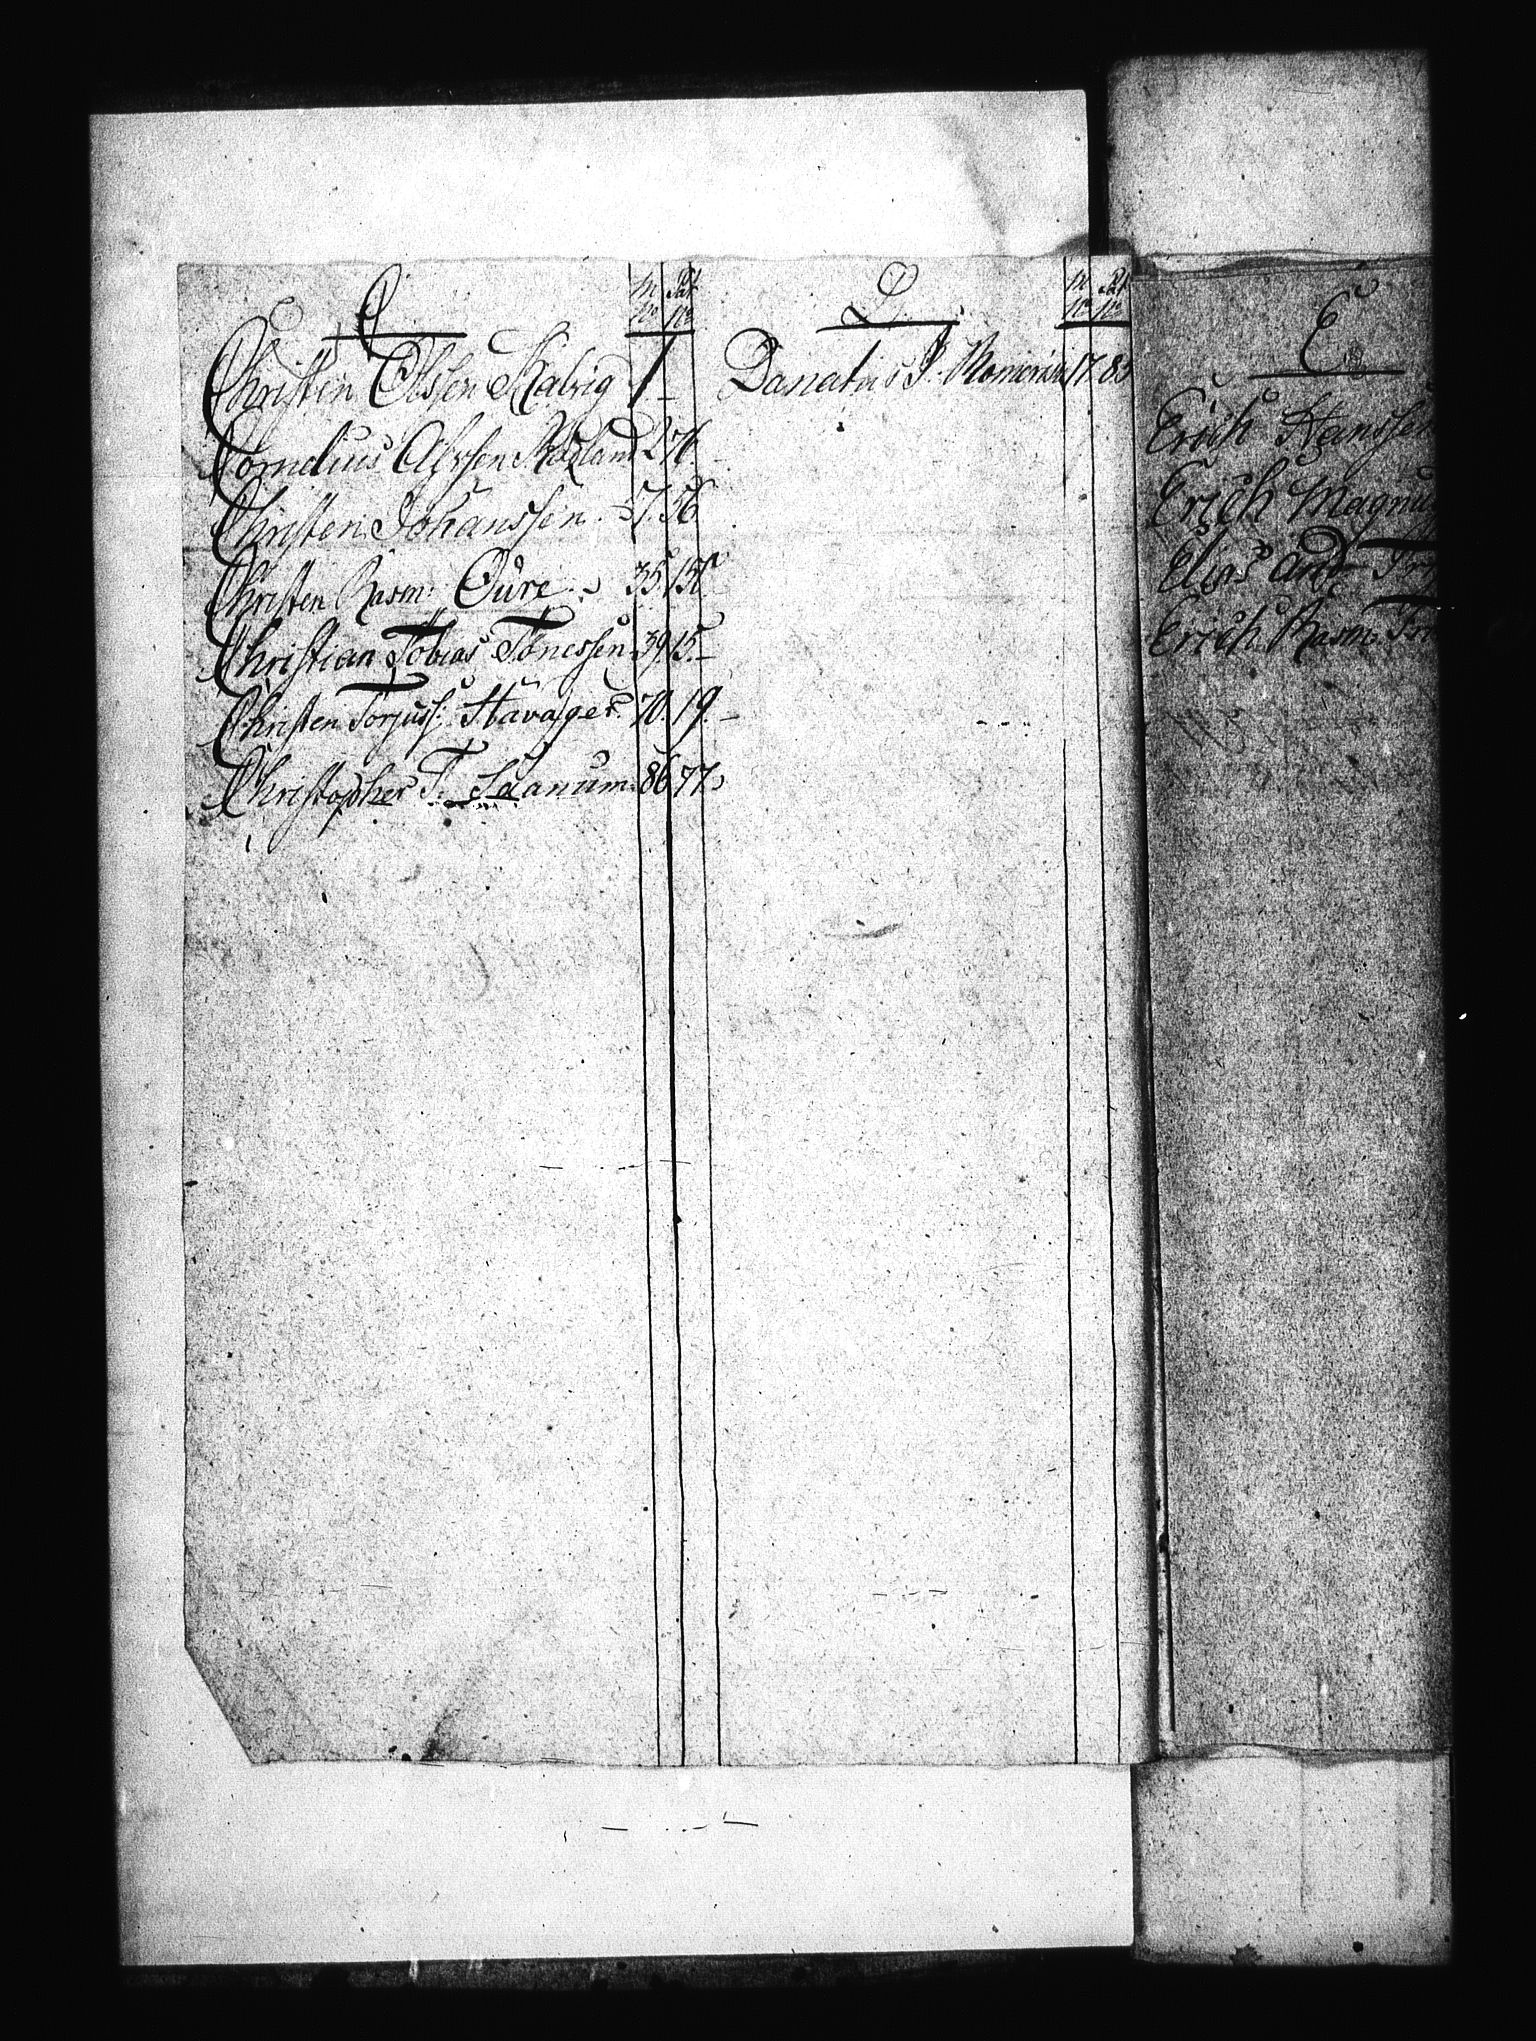 C.
Christen Olssen Malvig 1 –
Cornelius Assen 2 76
Christen Johanssen 7. 56
Christen Rasm: Oure 35. 15
Christian Tobias Tönessen 39. 15. –
Christen Torjuss: Stavager. 70. 19. –
Christopher T. Saanum. 86. 77.
D.
m No Pat No
Danatus P. 17. 83
E
Erich Hanssen
Erich Magnu
Elias And
Erich Rasm: